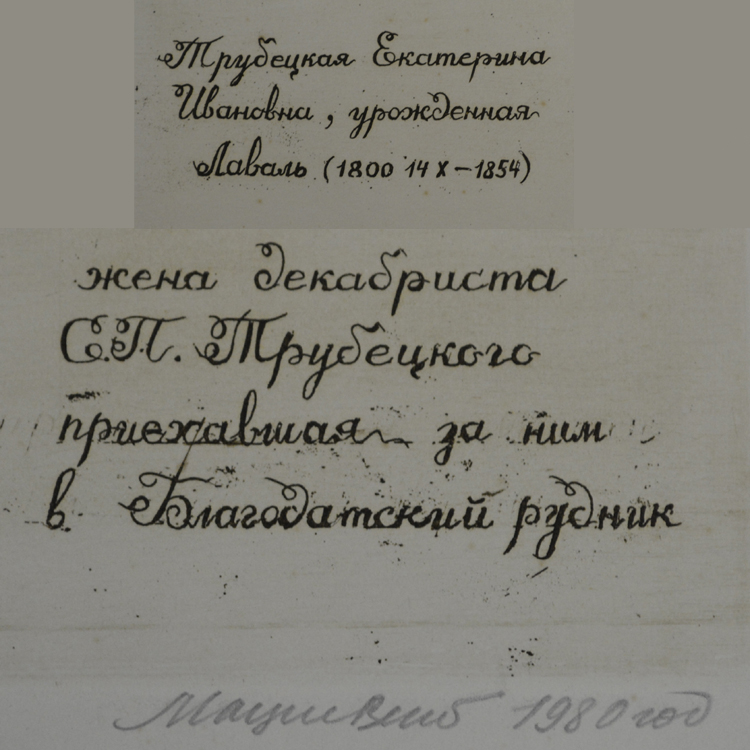 Трубецкая Екатерина
Ивановна, урожденная
Лаваль (1800 14 X – 1854)
жена декабриста
С.П. Трубецкого
приехавшая за ним
в Благодатский рудник
1980 год